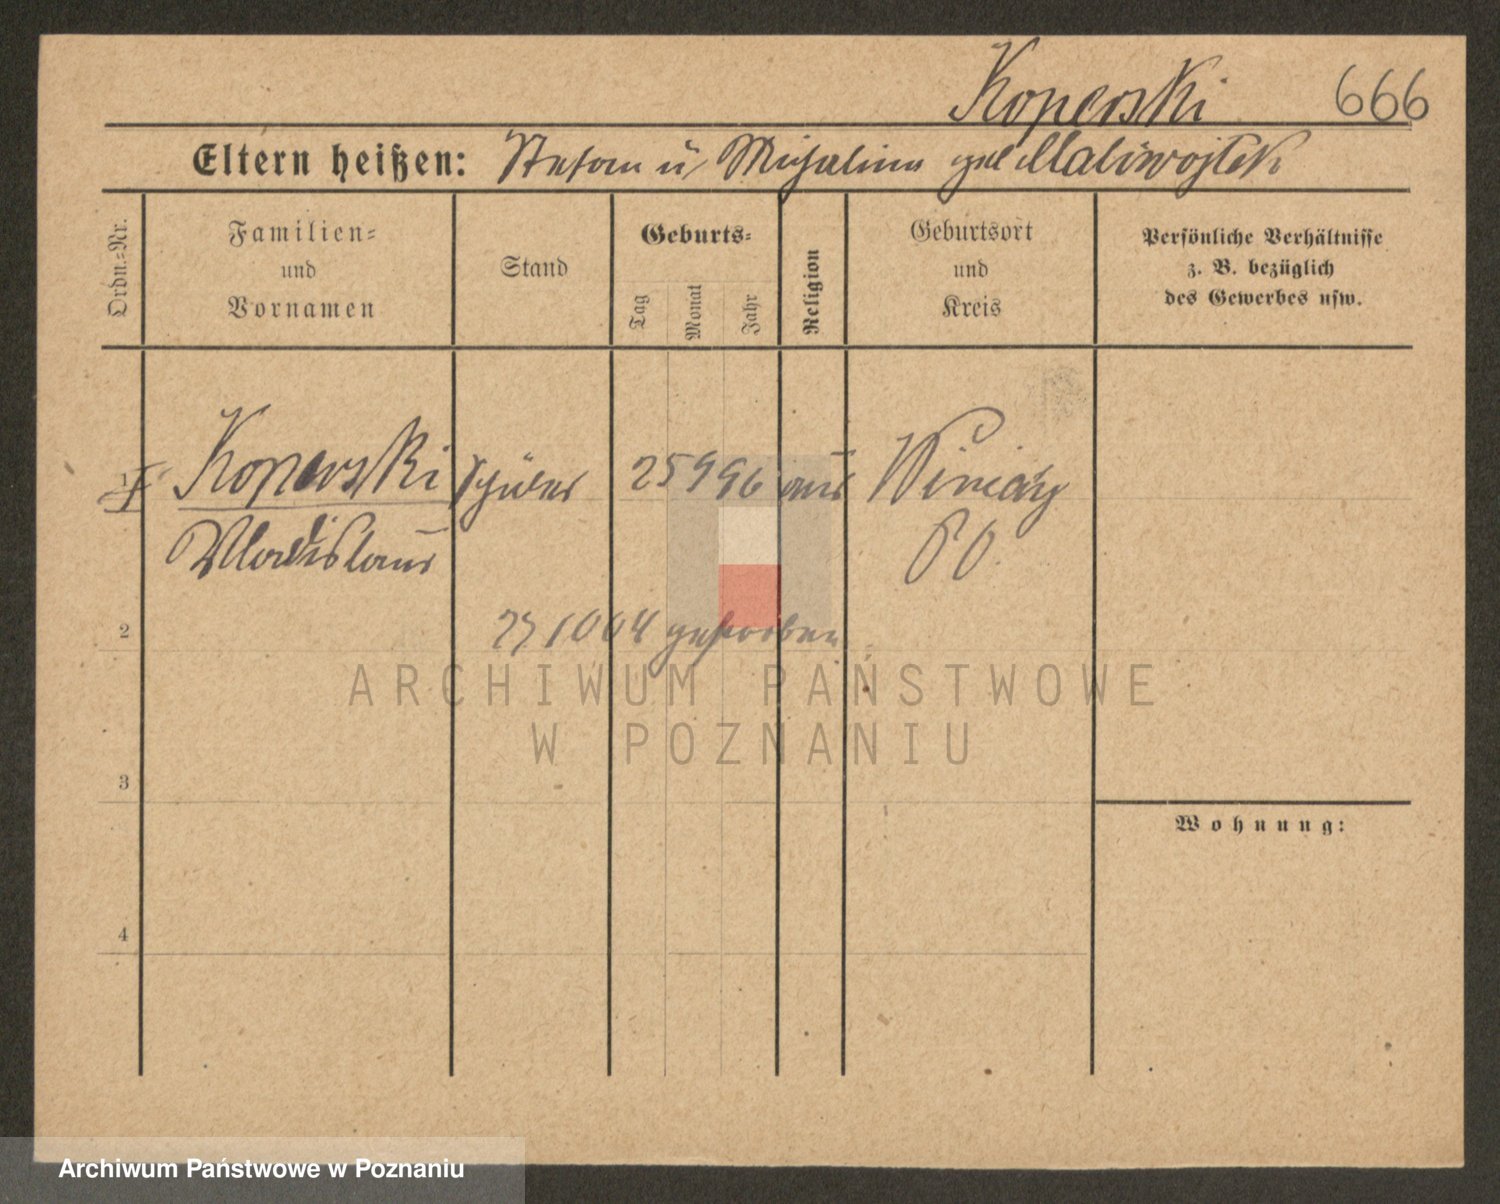 Koperski 666
Eltern heißen: Stefan u Michalina geb Maliwojtek
Ordn.-Nr.
Familien-
und
Vornamen
Stand
Geburts-
Tag
Monat
Jahr
Religion
Geburtsort
und
Kreis
Persönliche Verhältnisse
z. B. bezüglich
des Gewerbes usw.
1 Koperski Schüler 25 9 96 aus Winiary
Vladislaus PO.
2
gestorben
ARCHIWUM PAŃSTWOWE
W POZNANIU
3
Wohnung:
4
Archiwum Państwowe w Poznaniu